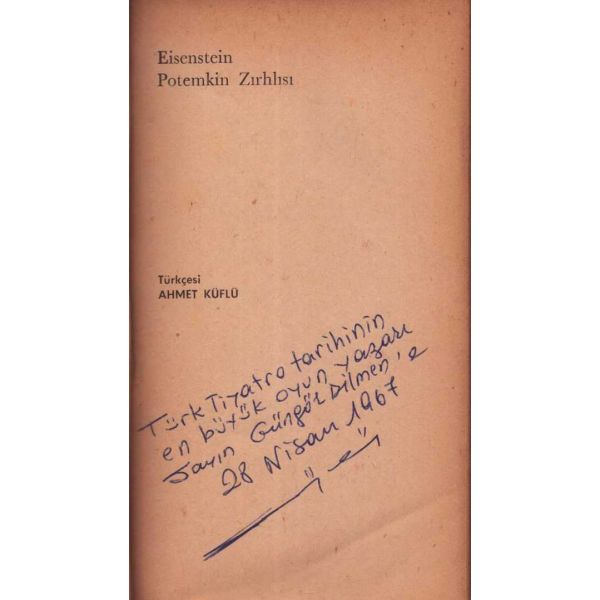 Eisenstein
Potemkin Zırhlısı
Türkçesi
AHMET KÜFLÜ
Türk Tiyatro tarihinin
en büyük oyun yazarı
Sayın Güngör Dilmen'e
28 Nisan 1967